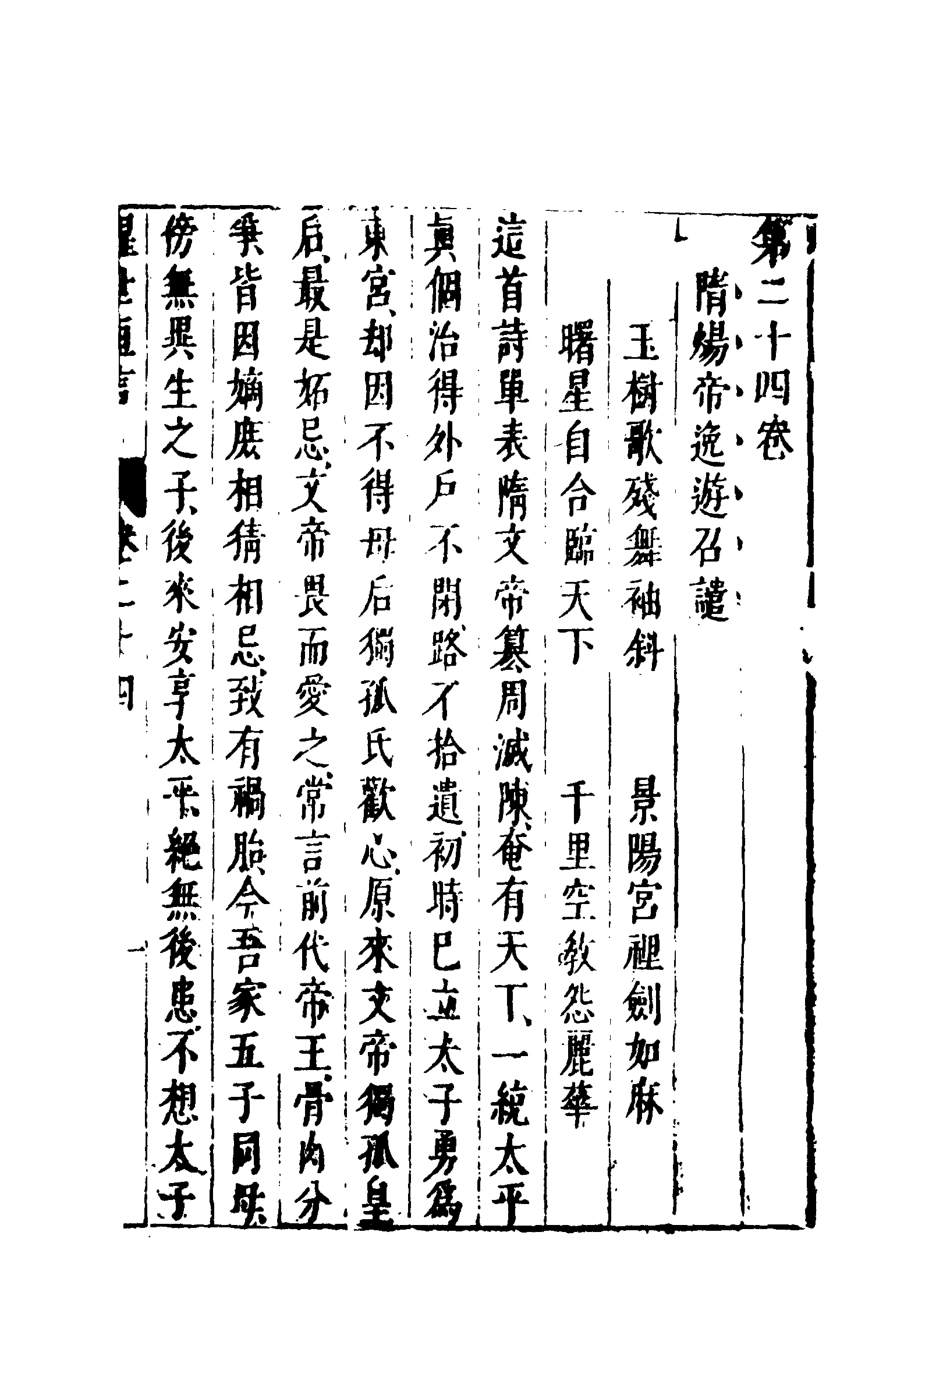 第二十四卷
隋煬帝逸遊召譴
玉樹歌殘舞袖斜　景陽宮裡劍如麻
曙星自合臨天下　千里空教怨麗華
這首詩單表隋文帝篡周滅陳、奄有天下、一統太平
真個治得外戶不閉路不拾遺、初時已立太子勇爲
東宮、却因不得母后獨孤氏歡心、原來文帝獨孤皇
后、最是妬忌、文帝畏而愛之、常言前代帝王、骨肉分
爭皆因嫡庶相猜相忌、致有禍胎、今吾家五子同母、
傍無異生之子、後來安享太平、絕無後患、不想太子
醒世恒言　卷二十四　一